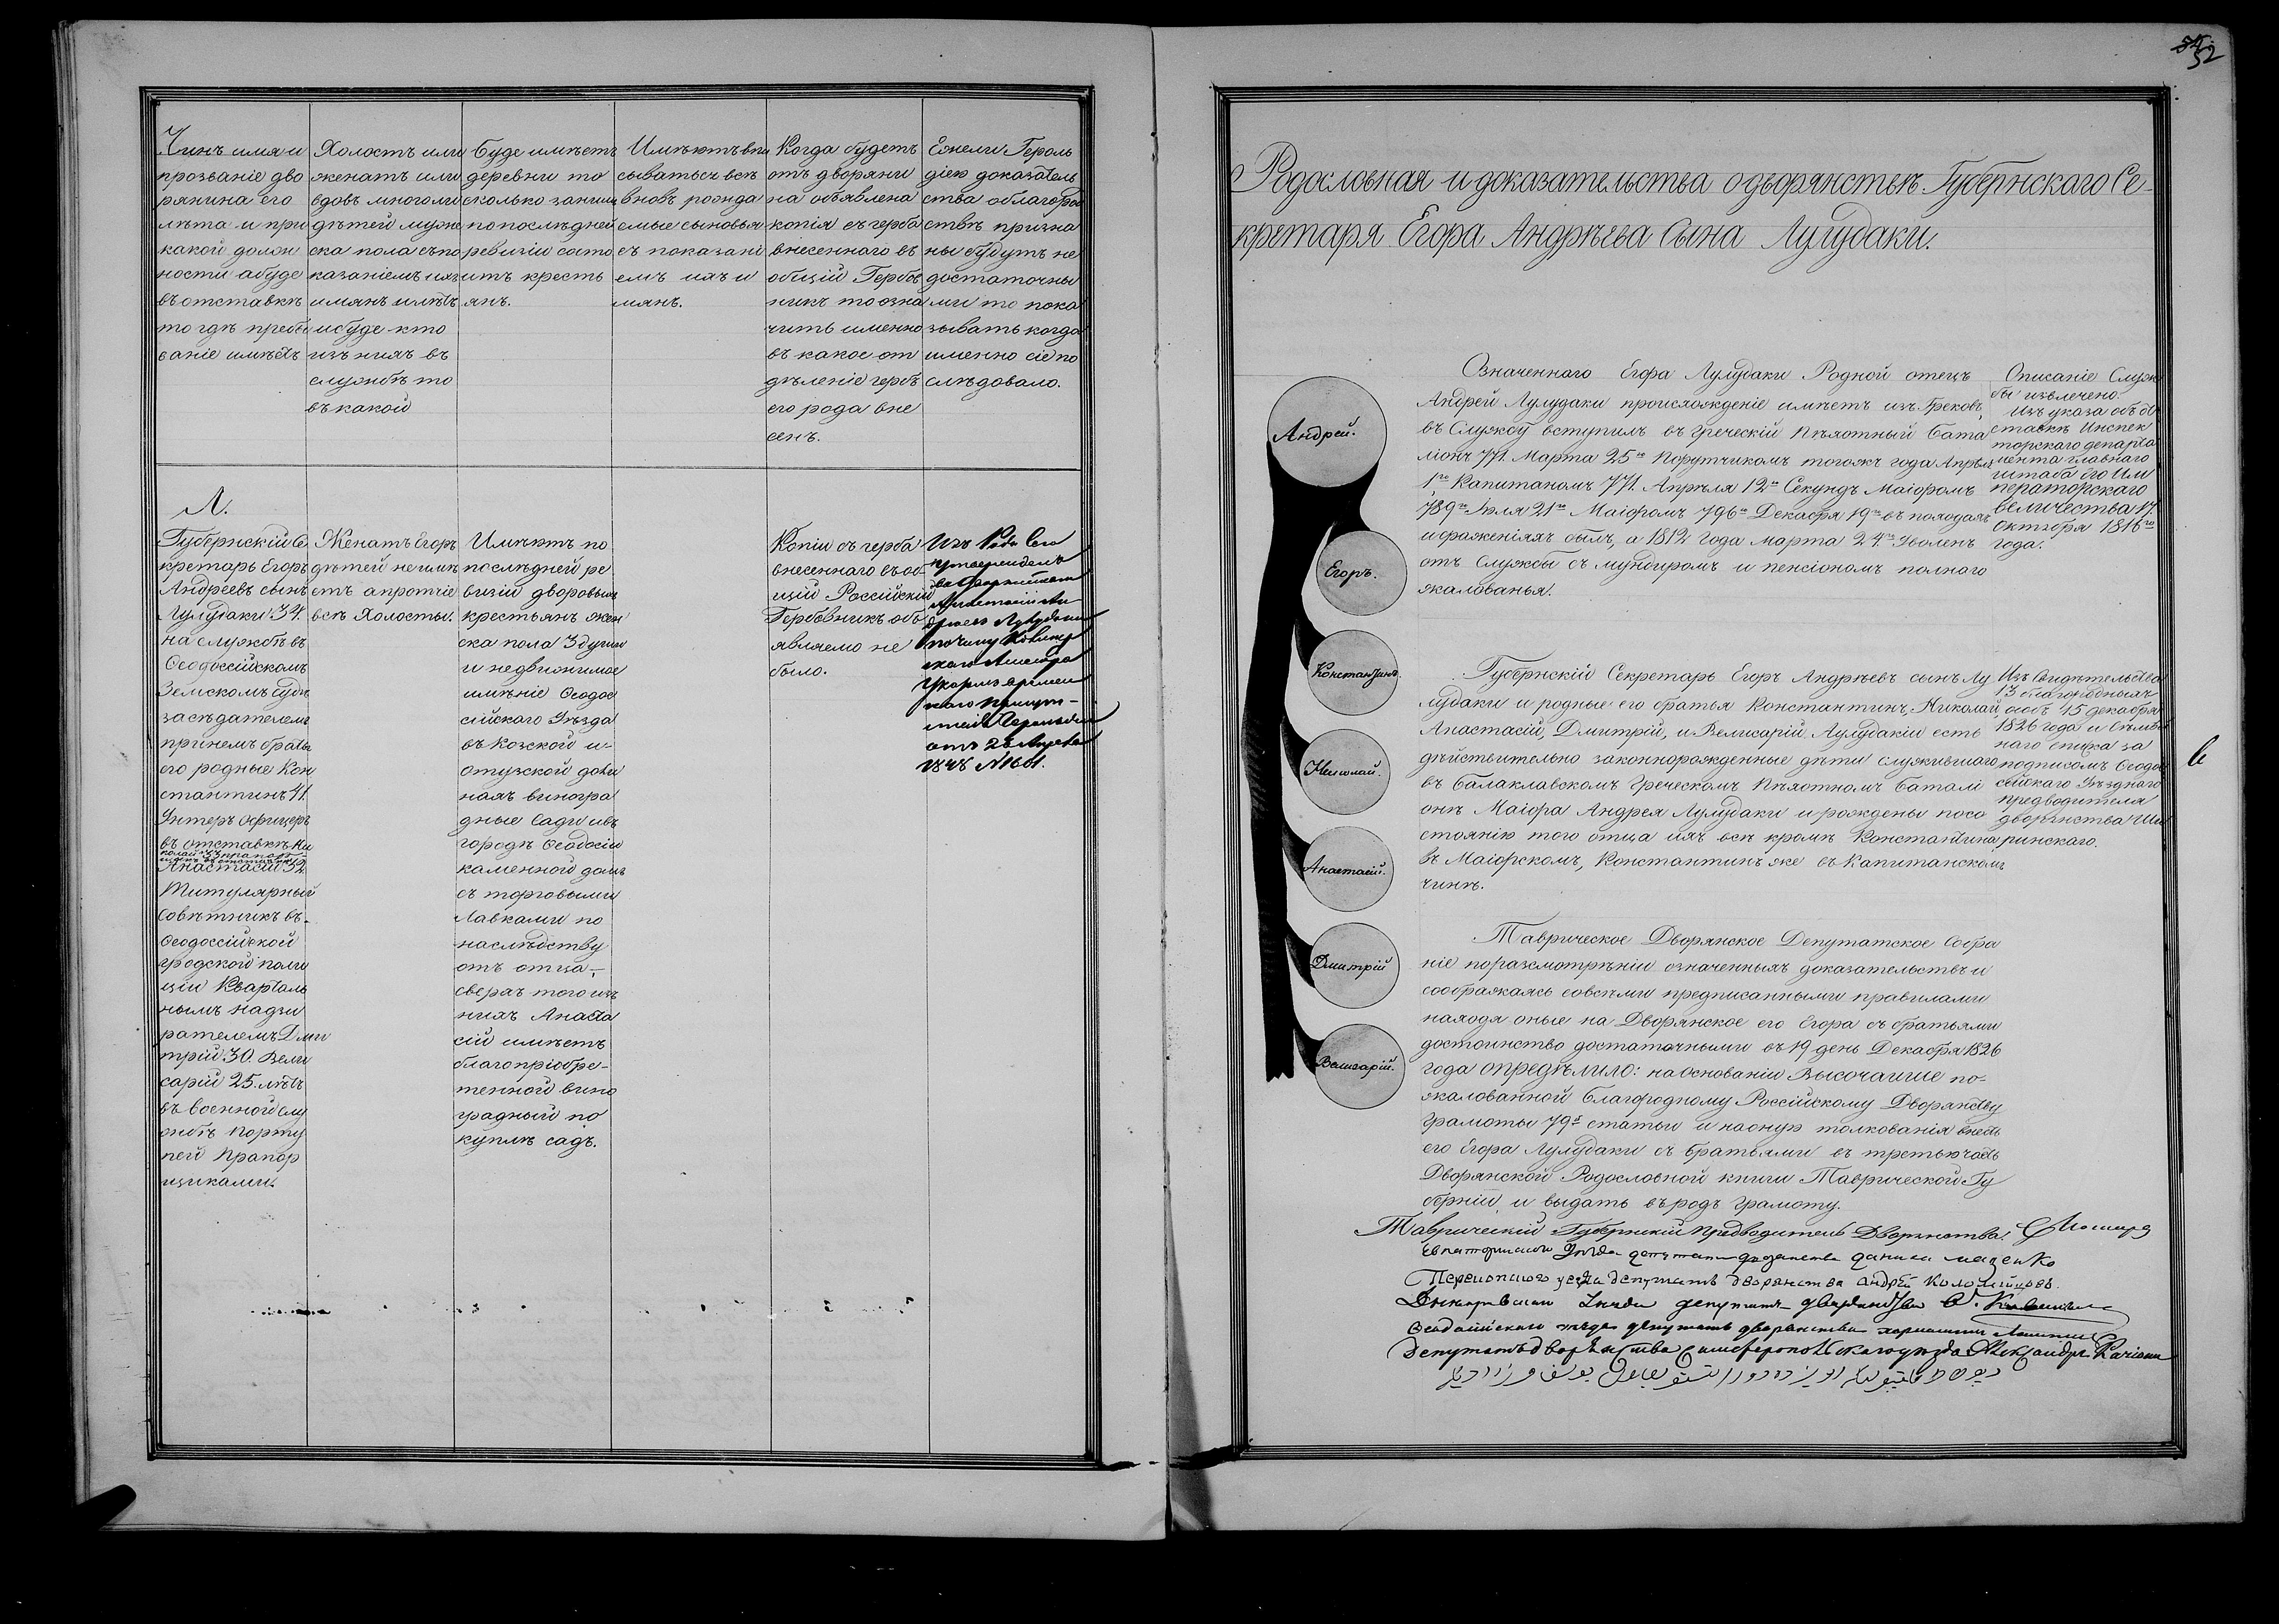 Чинъ имя и
прозваніе дво
рянина его
лѣта и при
какой долж
ности а буде
въ отставкѣ
то гдѣ пребы
ваніе имѣетъ
Холостъ или
женатъ или
вдовъ много ли
дѣтей муже
ска пола съ по
казаніемъ ихъ
имянъ и лѣтъ
и буде кто
изъ нихъ въ
службѣ то
въ какой
Буде имѣетъ
деревни то
сколько за ними
по послѣдней
ревизіи состо
итъ кресть
янъ.
Имѣютъ впи
сыватьсч всѣ
вновь рожда
емые сыновья
съ показані
емъ ихъ и
мянъ.
Когда будетъ
отъ дворяни
на объявлена
копія съ герба
внесеннаго въ
общій Гербов
никъ то озна
чить именно
въ какое от
дѣленіе гербъ
его рода вне
сенъ.
Ежели Героль
діею доказатель
ства о благород
ствѣ призна
ны будутъ не
достаточны
ми то пока
зывать когда
именно сіе по
слѣдовало.
Л.
Губернскій Се
кретарь Егоръ
Андреевъ сынъ
Лулудаки 34.
на службѣ въ
Ѳеодосійскомъ
Земскомъ судѣ
засѣдателемъ
при немъ братья
его родные Кон
стантинъ 41.
Унтеръ офицеръ
въ отставкѣ Ни
колай
Анастасій 32
Титулярный
совѣтникъ въ
Ѳеодоссійской
градской поли
ціи Кварталь
нымъ надзи
рателемъ Дми
трій 30. Вели
сарій 25. лѣтъ
въ военной слу
жбѣ Порту
пей Прапор
щиками.
Женатъ Егоръ
дѣтей не имѣ
етъ а протчіе
всѣ Холосты.
Имѣютъ по
послѣдней ре
визіи дворовыхъ
крестьянъ жен
ска пола 3 души
и недвижимое
имѣніе Ѳеодос
сійскаго Уѣзда
въ Козской и
отузской доли
нахъ виногра
дные Сады и въ
городѣ Ѳеодосіи
каменной домъ
съ торговыми
лавками по
наслѣдству
отъ отца,
сверхъ того изъ
нихъ Анаста
сій имѣетъ
благопріобре-
тенной вино
градный по
куплѣ садъ.
Копіи съ герба
внесеннаго въ об
щій Россійскій
Гербовникъ объ
являемо не
было.
Изъ Рода Сего
утвержденъ
въ Дворянствѣ
Анастасій Ан
дреевъ Лулудаки
по чину Коллеж
скаго Ассесора
Указомъ времен
наго присут-
ствія Герольдіи
отъ 28 Апреля
1848 №1601.
52
Родословная и доказательства о дворянствѣ Губернскаго Се-
кретаря Егора Андрѣева Сына Лулудаки.
Андрей.
Егоръ.
Константинъ.
Николай.
Анастасій.
Дмитрій
Велисарій.
Означеннаго Егора Лулудаки Родной отецъ
Андрей Лулудаки происхожденіе имѣетъ изъ Грековъ,
въ Службу вступилъ въ Греческій Пѣхотный бата
ліонъ 771. Марта 25го Порутчикомъ тогожъ года Апрѣля
1го Капитаномъ 771. Апрѣля 12го Секундъ Маіоромъ
789го Іюля 21го Маіоромъ 796го Декабря 19го въ походахъ
и сраженіяхъ былъ, а 1812 года Марта 24го Уволенъ
отъ Службы съ мундиромъ и пенсіономъ полнаго
жалованья.
Описаніе Служ
бы извлечено.
Изъ указа объ от
ставкѣ Инспек
торскаго департа
мента главнаго
штаба Его Им
ператорскаго
величества 17
октября 1816го
года.
Губернскій Секретарь Егоръ Андрѣевъ сынъ Лу
лудаки и родные его братья Константинъ, Николай,
Анастасій, Дмитрій, и Велисарій Лулудакіи есть
дѣйствительно законнорожденные дѣти служившаго
въ Балаклавскомъ Греческомъ Пѣхотномъ баталі
онѣ Маіора Андрея Лулудаки и рождены по со
стоянію того отца ихъ всѣ кромѣ Константина
въ Маіорскомъ, Константинъ же въ Капитанскомъ
чинѣ.
Изъ Свидѣтельства
13 благородныхъ
особъ 15 декабря
1826 года и
наго списка за
подписомъ Ѳеодос
сійскаго Уѣзднаго
предводителя
дворянства Ши
ринскаго.
в
Таврическое Дворянское Депутатское Собра
ніе по разсмотрѣніи означенныхъ доказательствъ и
соображаясь со всѣми предписанными правилами
находя оные на Дворянское его Егора съ братьями
достоинство достаточными въ 19 день Декабря 1826
года опредѣлило: на основаніи Высочайше по-
жалованной благородному Россійскому Дворянству
грамоты 79й статьи и на оную толкованія внесть
его Егора Лулудаки съ братьями въ третью часть
Дворянской Родословной книги Таврической Гу
берніи, и выдать въ родъ грамоту.
Таврическій Губернскій Предводитель Дворянства
Евпаторійскаго Уѣзда депутатъ дворянства
Перекопского уезда депутатъ дворянства андрей Коломийцовъ.
Днепровскаго Уѣзда депутатъ дворянства
Ѳеодосійскаго уѣзда депутатъ дворянства
Депутатъ дворянства Симферопольскаго уѣзда Александръ